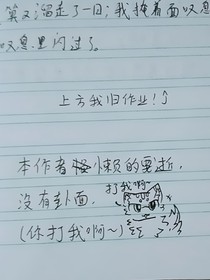 算又溜走了一日;我掩着面叹息
叹息里闪过了。
上方我旧作业!↑
本作者懒的要逝,
打我啊~
没有封面,
(你打我啊~)